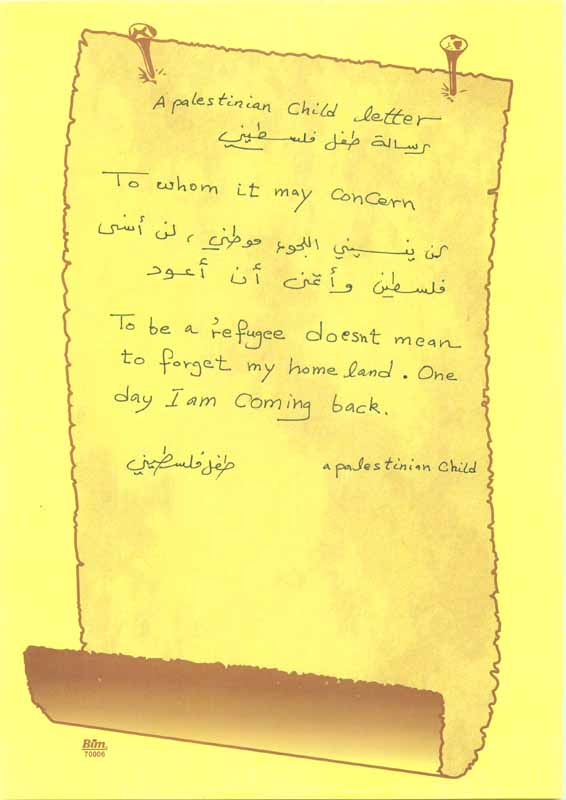 A palestinian Child letter
رسالة طفل فلسطيني
To whom it may concern
لن ينسيني اللجوء موطني ، لن أنسى
فلسطين وأتمنى أن أعود
To be a refugee doesnt mean
to forget my home land . One
day I am Coming back.
طفل فلسطيني
a palestinian Child
Bim
70006